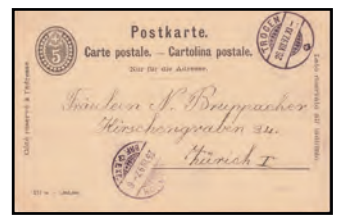 Postkarte.
Carte postale. — Cartolina postale.
Nur für die Adresse.
5
TROGEN
Côté réservé à l'adresse.
Lato riservato all'indirizzo.
Fräulein N. Bruppacher
Hirschengraben 24.
Zürich I